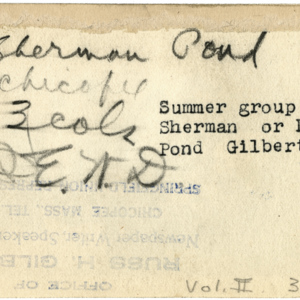 Sherman Pond
Chicopee
3 cols
Summer group
Sherman or
Pond Gilbert
SPRINGFIELD UNION
CHICOPEE MASS. TEL
Newspaper Writer, Speaker
RUSS H. GILB
OFFICE OF
Vol. II 3